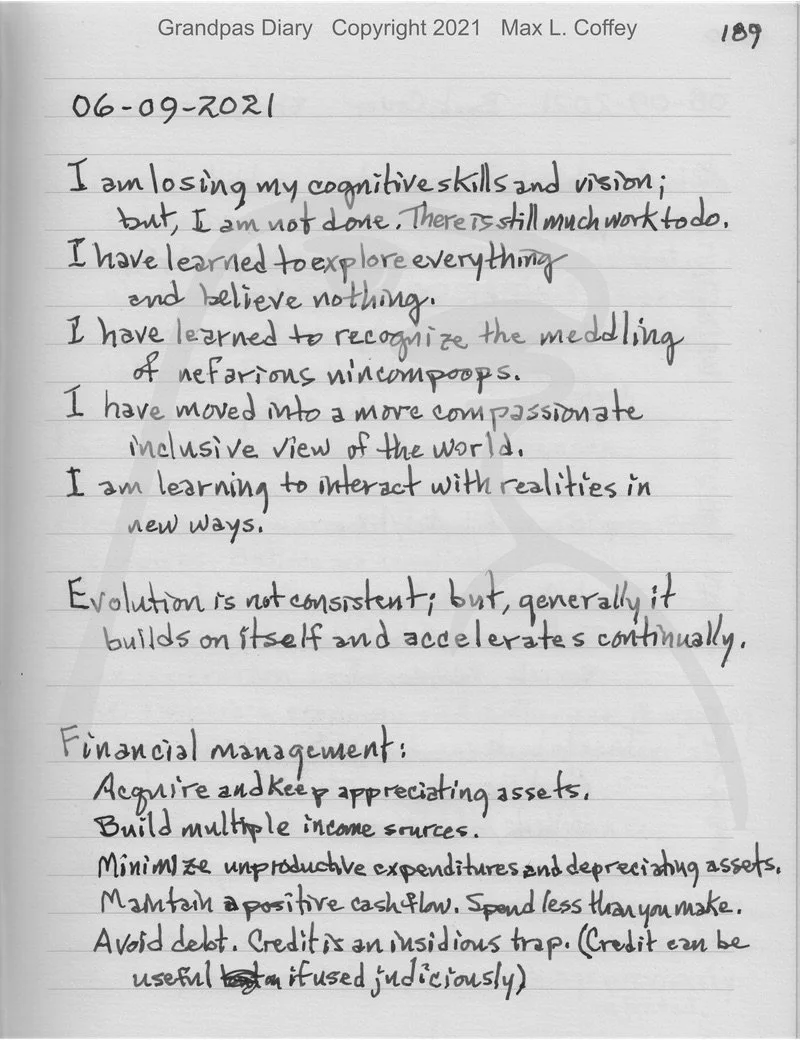 Grandpas Diary Copyright 2021 Max L. Coffey
189
06-09-2021
I am losing my cognitive skills and vision;
but, I am not done. There is still much work to do.
I have learned to explore everything
and believe nothing.
I have learned to recognize the meddling
of nefarious nincompoops.
I have moved into a more compassionate
inclusive view of the world.
I am learning to interact with realities in
new ways.
Evolution is not consistent; but, generally it
builds on itself and accelerates continually.
Financial management:
Acquire and Keep appreciating assets.
Build multiple income sources.
Minimize unproductive expenditures and depreciating assets.
Maintain a positive cashflow. Spend less than you make.
Avoid debt. Credit is an insidious trap. (Credit can be
useful if used judiciously)